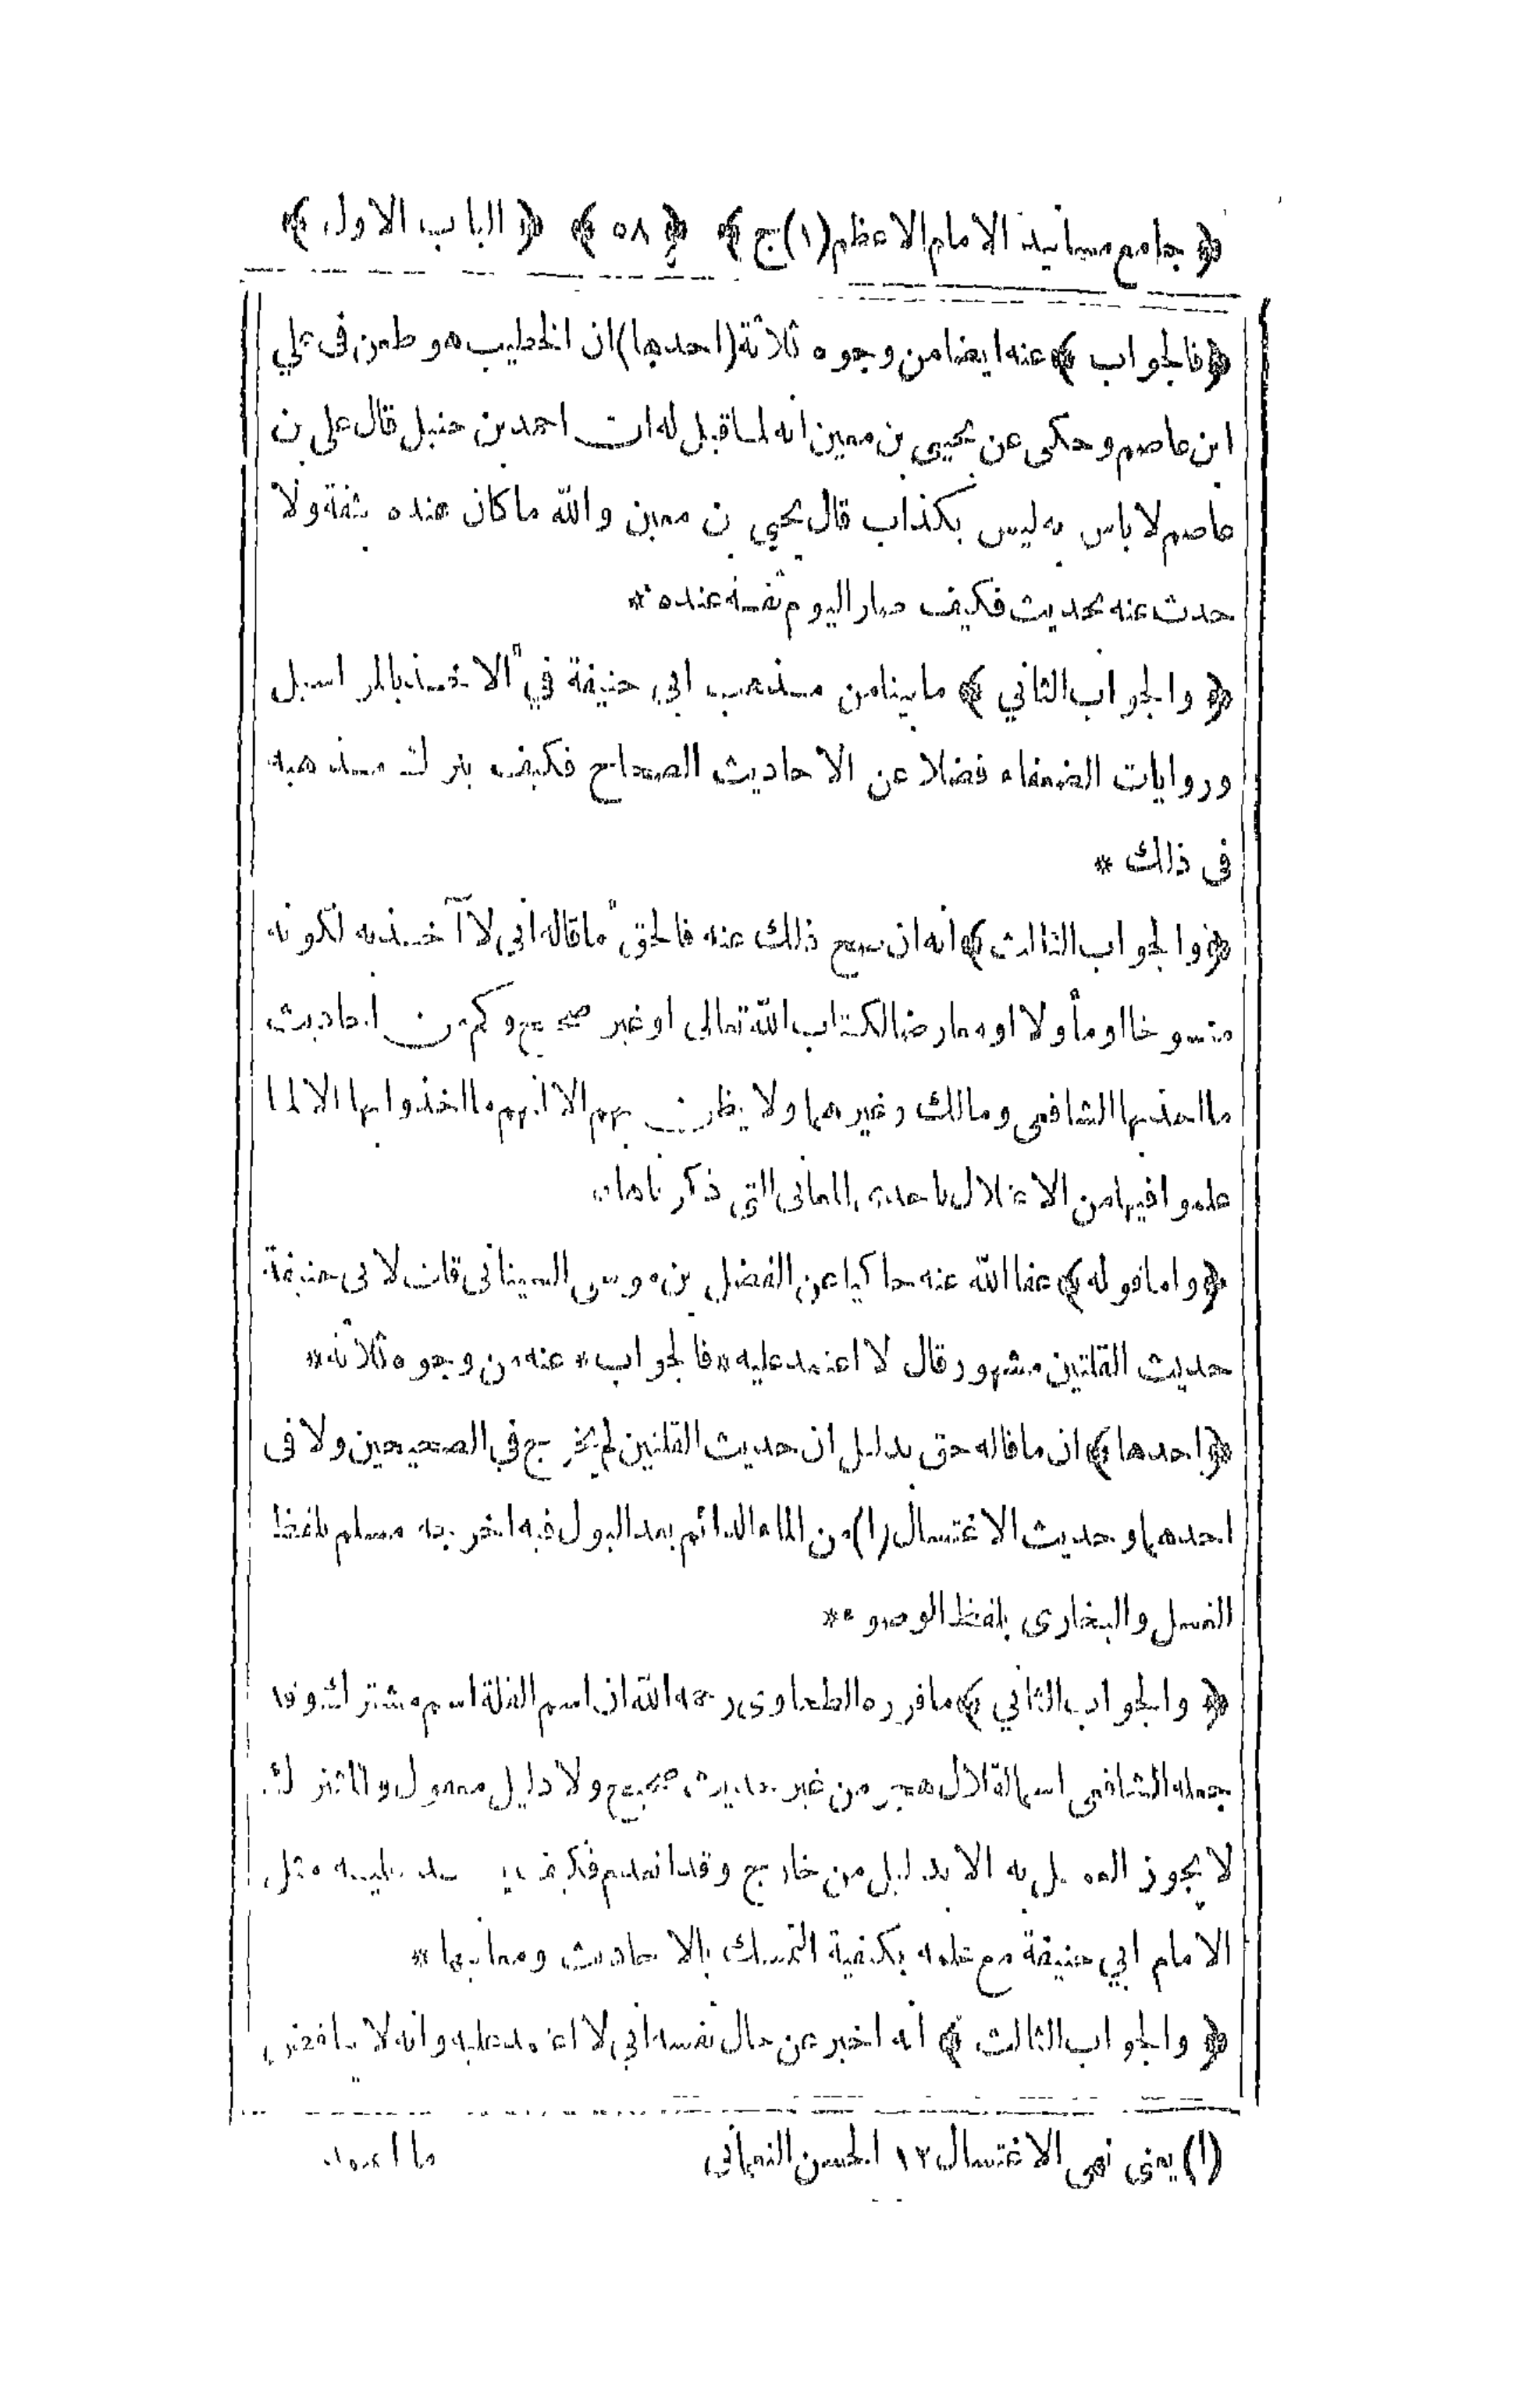 ﴿ جامع مسانيد الامام الاعظم (١) ج ﴾ ﴿ ٥٨ ﴾ ﴿ الباب الاول ﴾
﴿ فالجواب ﴾ عنه ايضا من وجوه ثلاثة (احدها) ان الخطيب هو طعن فى علي
ابن عاصم وحكى عن يحيى بن معين انه لما قيل له ان احمد بن حنبل قال على بن
عاصم لا باس به ليس بكذاب قال يحيى بن معين والله ما كان عنده بثقة ولا
حدث عنه بحديث فكيف صار اليوم ثقة عنده *
﴿ والجواب الثاني ﴾ ما بينا من مذهب ابي حنيفة في الاخذ بالمراسيل
وروايات الضعفاء فضلا عن الاحاديث الصحاح فكيف يترك مذهبه
فى ذلك *
﴿ والجواب الثالث ﴾ انه ان سمع ذلك عنه فالحق ما قاله انى لا آخذ به لكونه
منسوخا او مأولا او معارضا لكتاب الله تعالى او غير صحيح وكم من احاديث
ما اخذ بها الشافعى ومالك وغيرهما ولا يظن بهم الا انهم ما اخذوا بها الا لما
علموا فيها من الاعلال باحدى المعانى التى ذكرناها *
﴿ واما قوله ﴾ عفا الله عنه حاكيا عن الفضل بن موسى السينانى قلت لابى حنيفة
حديث القلتين مشهور قال لا اعتمد عليه * فالجواب * عنه من وجوه ثلاثة *
﴿ احدها ﴾ ان ما قاله حق بدليل ان حديث القلتين لم يخرج في الصحيحين ولا فى
احدهما وحديث الاغتسال (١) من الماء الدائم بعد البول فيه اخرجه مسلم بلفظ
الغسل والبخارى بلفظ الوضوء *
﴿ والجواب الثاني ﴾ ما قرره الطحاوى رحمه الله ان اسم القلة اسم مشترك وقد
جعله الشافعى اسما لقلال هجر من غير حديث صحيح ولا دليل معمول والمشترك
لا يجوز العمل به الا بدليل من خارج وقد انعدم فكيف عليه مثل
الامام ابي حنيفة مع علمه بكيفية التمسك بالاحاديث ومعانيها *
﴿ والجواب الثالث ﴾ انه اخبر عن حال نفسه انى لا اعتمد عليه وانه لا
(١) يعنى نهى الاغتسال ١٢ الحسن النعمانى
ما اعتمد